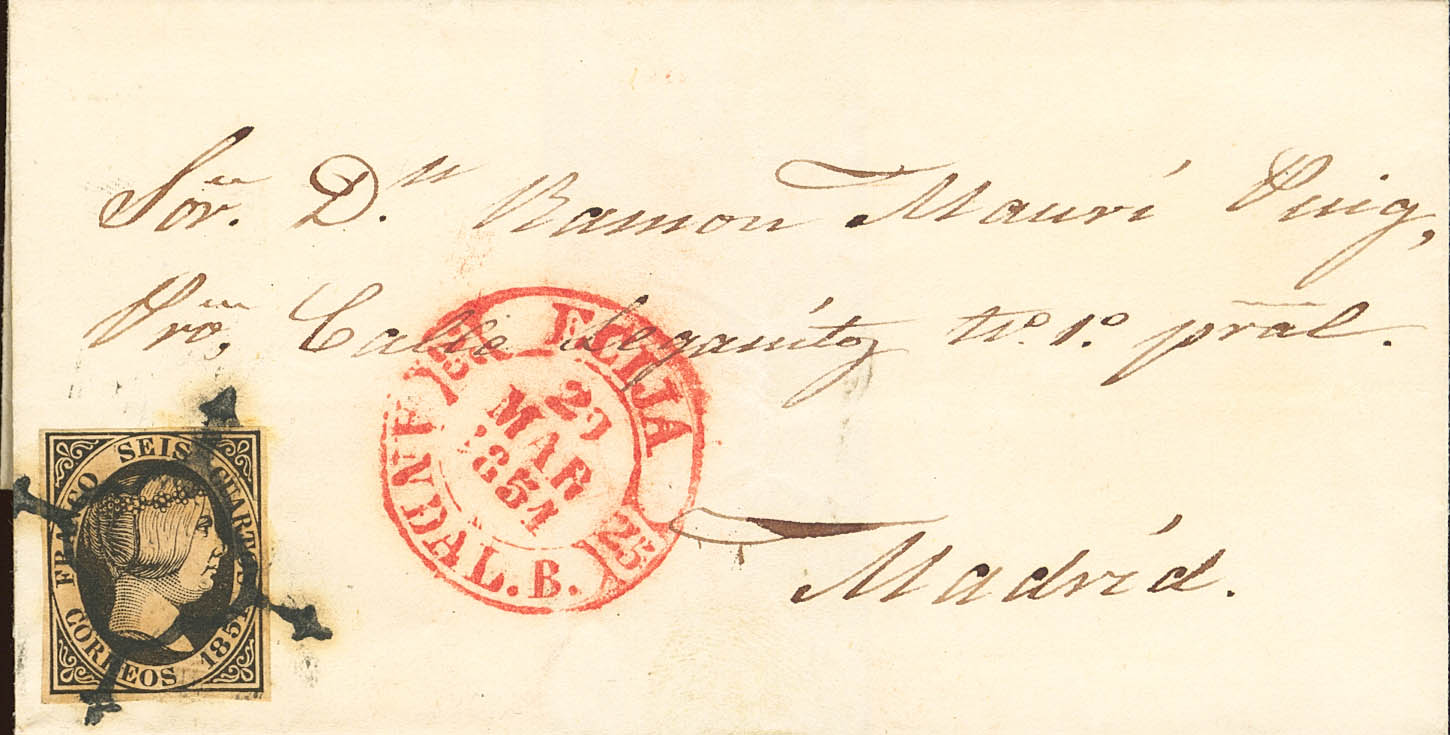 Sor. Dn. Ramon Maurí Puig,
Pro, Calle Leganitoz No. 1o. prãl.
Madrid.
ECIJA
29
MAR
1851
25
ANDAL. B.
FRANCO SEIS CUARTOS
CORREOS 1851